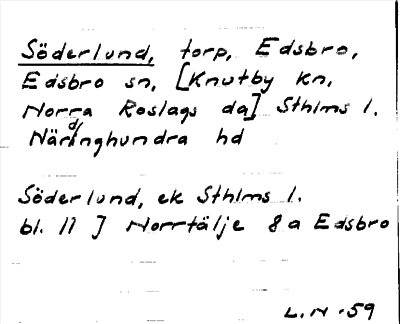 Söderlund, torp, Edsbro,
Edsbro sn, [Knutby kn,
Norra Roslags da] Sthlms l.
Närdinghundra hd
Söderlund, ek Sthlms l.
bl. 11 J Norrtälje 8a Edsbro
L.N. -59